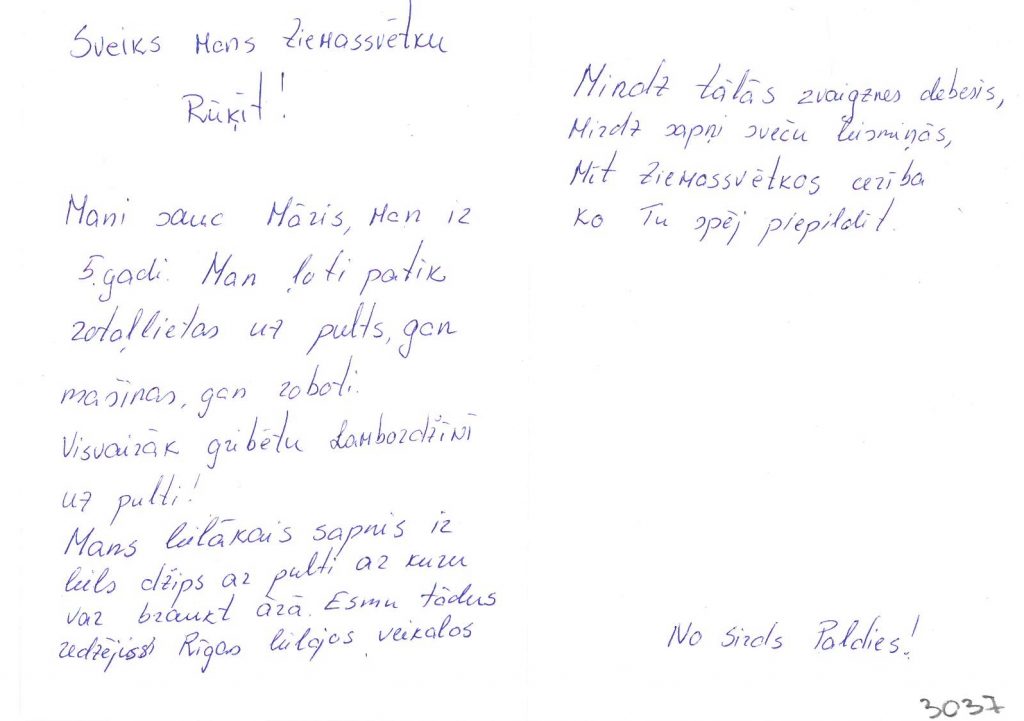 Sveiks Mans Ziemassvētku
Rūķīt!
Mani sauc Māris, Man ir
5.gadi. Man ļoti patik
rotaļlietas uz pults, gan
mašīnas, gan roboti.
Visvairāk gribētu Lambordžīnī
uz pulti!
Mans lielākais sapnis ir
liels džips ar pulti ar kuru
var braukt ārā. Esmu tādus
redzējis Rīgas lielajos veikalos
Mirdz tālās zvaigznes debesīs,
Mirdz sapņi sveču liesmiņās,
Mīt Ziemassvētkos cerība
ko Tu spēj piepildīt.
No sirds Paldies!
3037